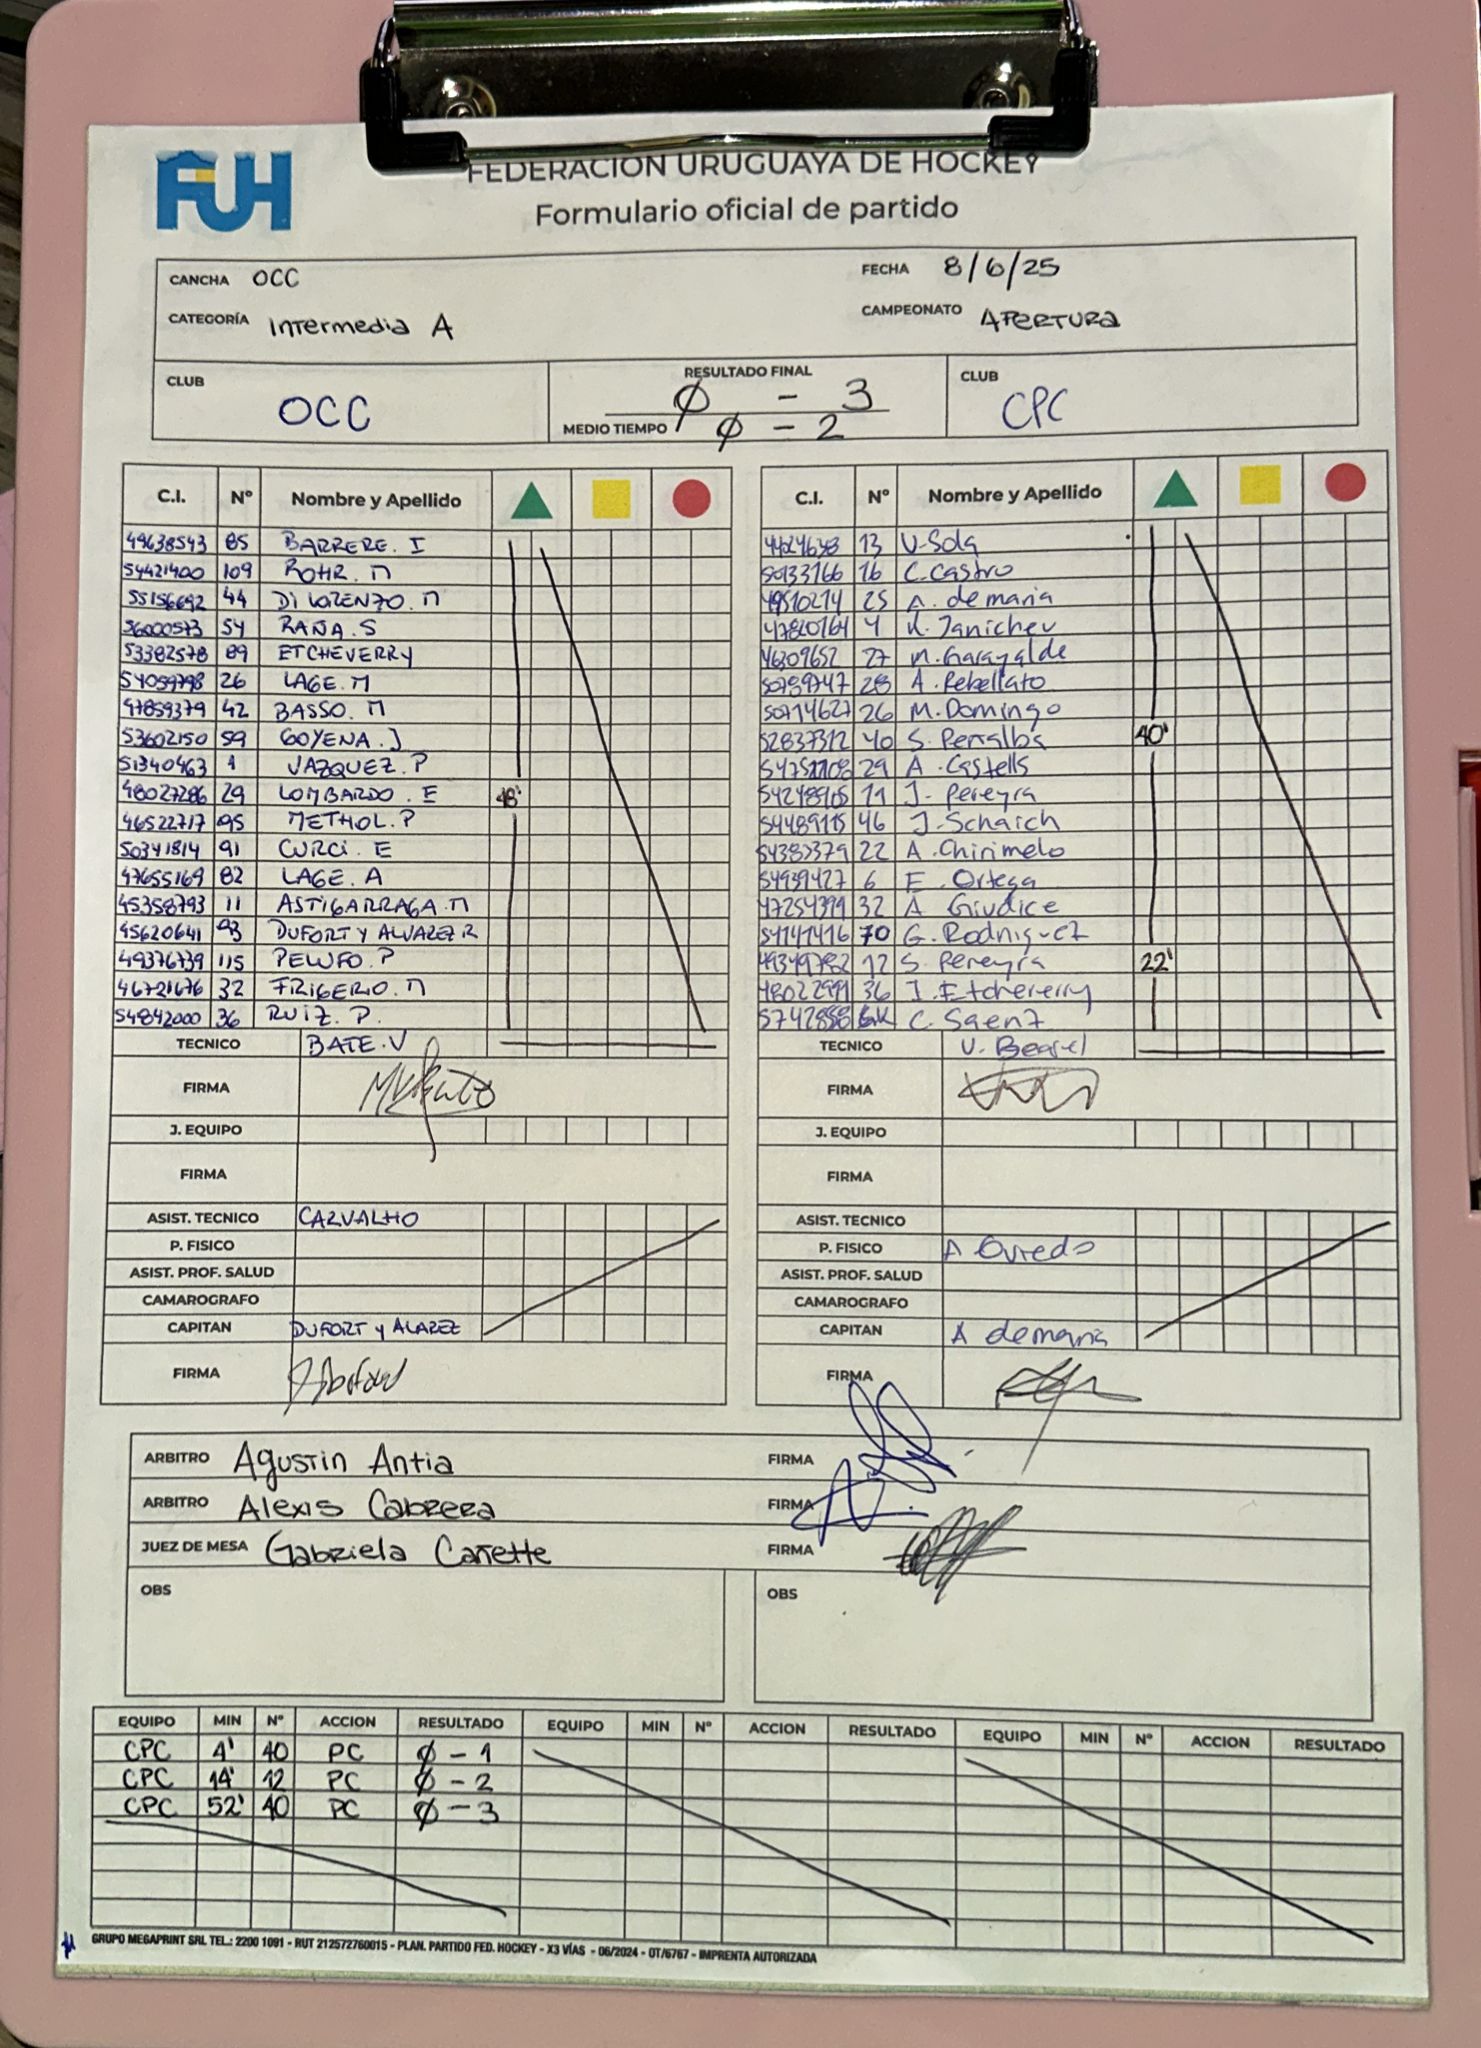 FUH
FEDERACION URUGUAYA DE HOCKEY
Formulario oficial de partido
CANCHA OCC FECHA 8/6/25
CATEGORÍA Intermedia A CAMPEONATO APERTURA
CLUB OCC RESULTADO FINAL Ø - 3 CLUB CPC
MEDIO TIEMPO Ø - 2
C.I. Nº Nombre y Apellido
49638543 85 BARRERE. I
54421400 109 ROHR. M
55156692 44 DI LORENZO. M
56000573 54 RAÑA. S
53382578 89 ETCHEVERRY
54059798 26 LAGE. M
47859379 42 BASSO. M
53602150 59 GOYENA. J
51340463 1 VAZQUEZ. P
48027286 29 LOMBARDO. E 48'
46522717 95 METHOL. P
50341814 91 CURCI. E
47655169 82 LAGE. A
45358793 11 ASTIGARRAGA. M
45620641 93 DUFORT Y ALVAREZ R
49376739 115 PELUFO. P
46721676 32 FRIGERIO. M
54842000 36 RUIZ. P.
TECNICO BATE. V
FIRMA
J. EQUIPO
FIRMA
ASIST. TECNICO CARVALHO
P. FISICO
ASIST. PROF. SALUD
CAMAROGRAFO
CAPITAN DUFORT y ALAREZ
FIRMA
C.I. Nº Nombre y Apellido
13 V. Sola
50133766 16 C. Castro
49510214 25 A. de maria
47820764 4 K. Janichev
46309652 27 M. Garayalde
50789747 28 A. Rebellato
50714627 26 M. Domingo
52837312 40 S. Perralba 40'
29 A. Castells
54248905 19 J. Pereyra
54489115 46 J. Schaich
54382379 22 A. Chirimelo
54939427 6 E. Ortega
47254399 32 A. Giudice
54141416 70 G. Rodriguez
49349782 12 S. Pereyra 22'
48022991 36 I. Etcheverry
57428858 GK C. Saenz
TECNICO
FIRMA
J. EQUIPO
FIRMA
ASIST. TECNICO
P. FISICO A Oviedo
ASIST. PROF. SALUD
CAMAROGRAFO
CAPITAN A demaria
FIRMA
ARBITRO Agustin Antia FIRMA
ARBITRO Alexis Cabrera FIRMA
JUEZ DE MESA Gabriela FIRMA
OBS OBS
EQUIPO MIN Nº ACCION RESULTADO EQUIPO MIN Nº ACCION RESULTADO EQUIPO MIN Nº ACCION RESULTADO
CPC 4' 40 PC Ø - 1
CPC 14' 12 PC Ø - 2
CPC 52' 40 PC Ø - 3
GRUPO MEGAPRINT SRL TEL.: 2200 1091 - RUT 212572760015 - PLAN. PARTIDO FED. HOCKEY - X3 VÍAS - 06/2024 - OT/6767 - IMPRENTA AUTORIZADA